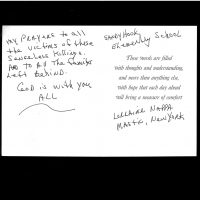 My Prayers to all
the victims of these
Senseless Killings.
And to All The Families
Left Behind.
God is with you
ALL
Sandy Hook
Elementary School
These words are filled
with thoughts and understanding,
and more than anything else,
with hope that each day ahead
will bring a measure of comfort
Lorraine Nappa
Mastic, New York